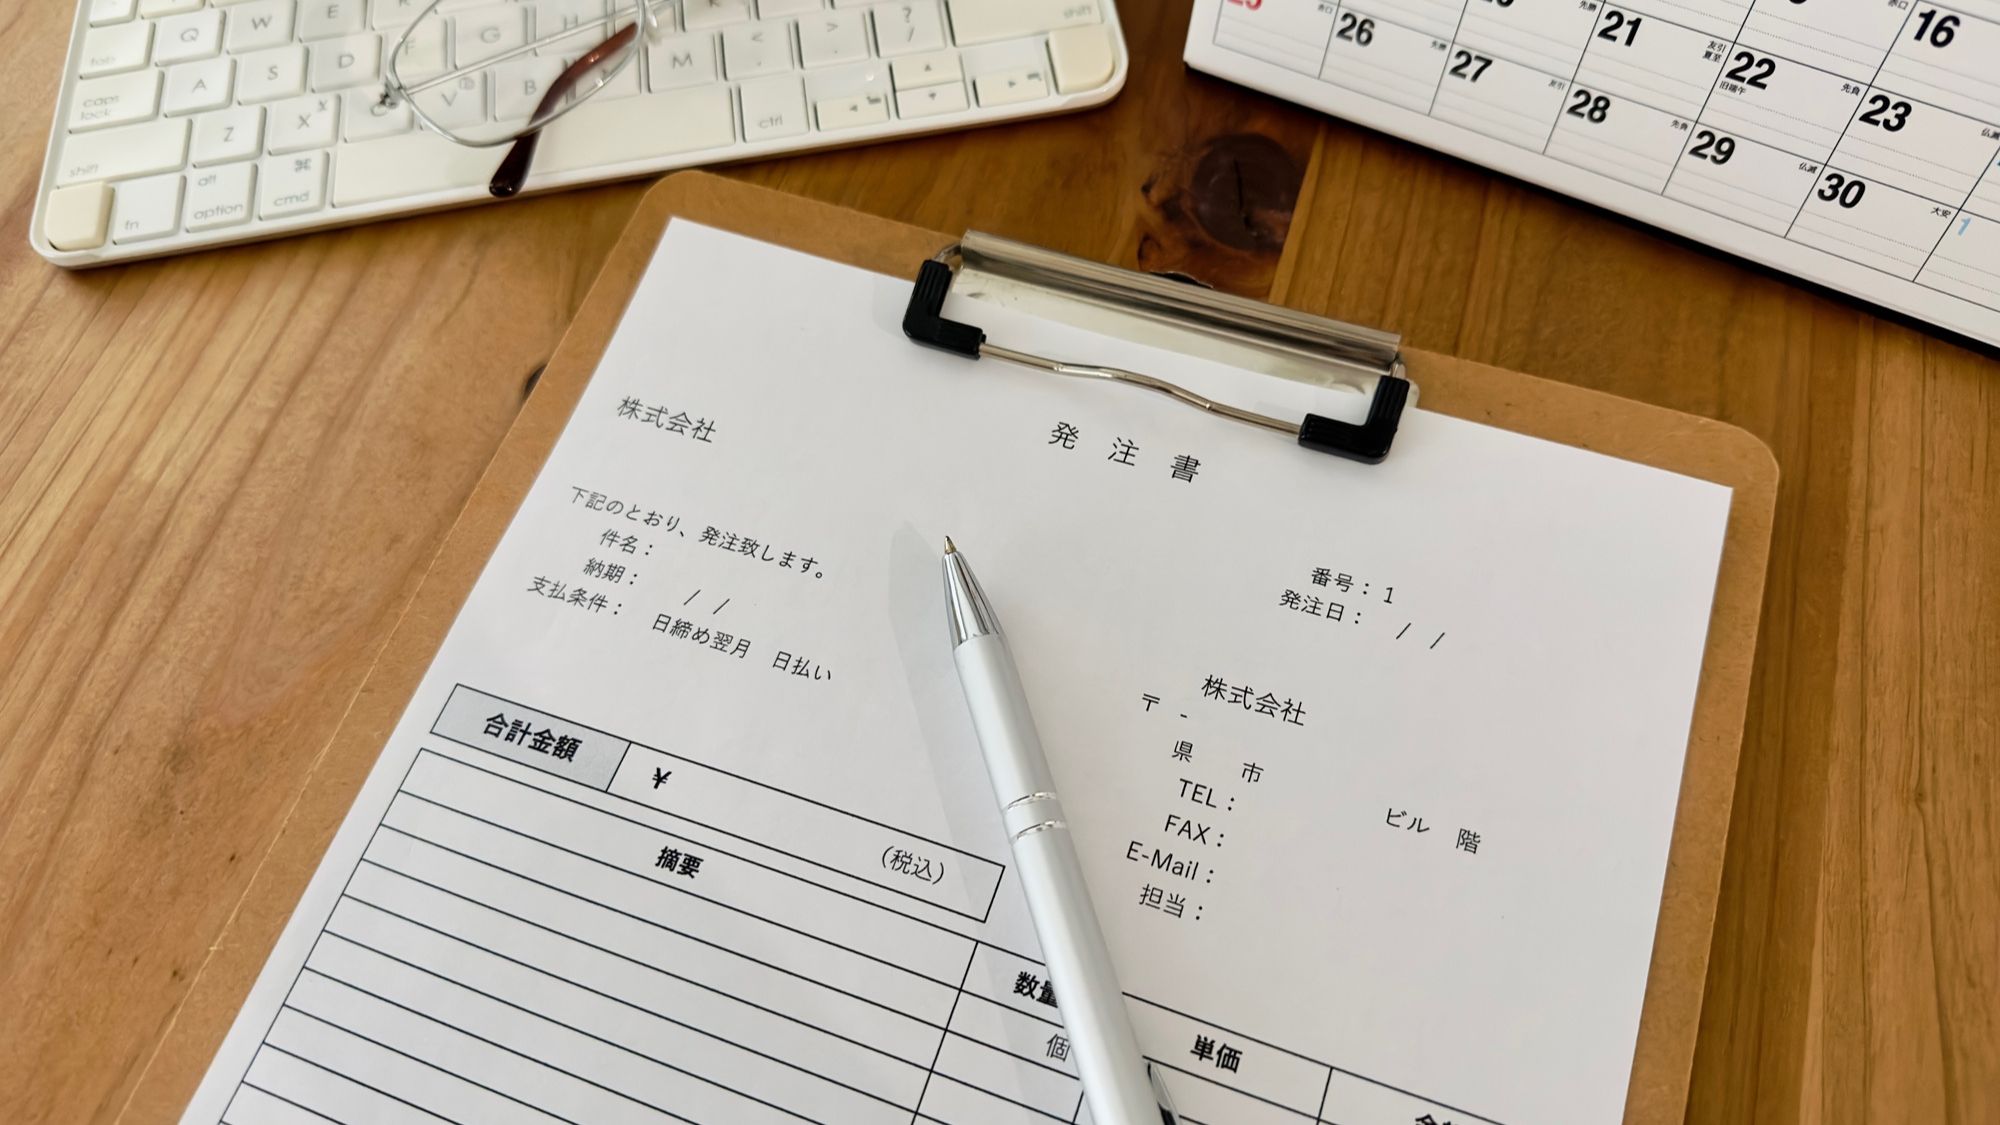 Q W E
A S D F G H
Z X C V B M < , > . ? /
tab
caps lock
shift
shift
fn
alt option
⌘ cmd
ctrl
16
21 友引 夏至
22 旧端午 先負
23 仏滅
26 先勝
27 友引
28 先負
29 仏滅
30 大安
1
株式会社
発 注 書
下記のとおり、発注致します。
件名：
納期： / /
支払条件： 日締め翌月 日払い
番号：1
発注日： / /
株式会社
〒 -
県 市
ビル 階
TEL：
FAX：
E-Mail：
担当：
合計金額 ¥ (税込)
摘要 数量 単価
個